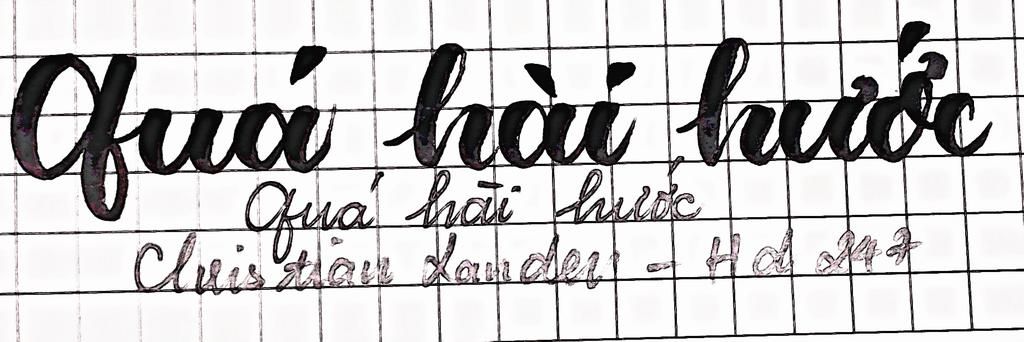 Quá hài hước
Quá hài hước
Christian Lander - Hd 247